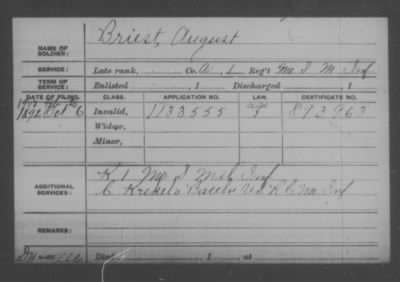 NAME OF SOLDIER: Briest, August
SERVICE: Late rank, Co. A, 1 Reg't Mo S. M. Inf
TERM OF SERVICE: Enlisted , 1 Discharged , 1
DATE OF FILING. CLASS. APPLICATION NO. LAW. CERTIFICATE NO.
1892 Oct 6 Invalid, 1133555 893963
Widow,
Minor,
ADDITIONAL SERVICES: K 1 Mo S Mil Inf
C Krekels Battn U.S. R C Mo Inf
REMARKS:
Died , 1 , at